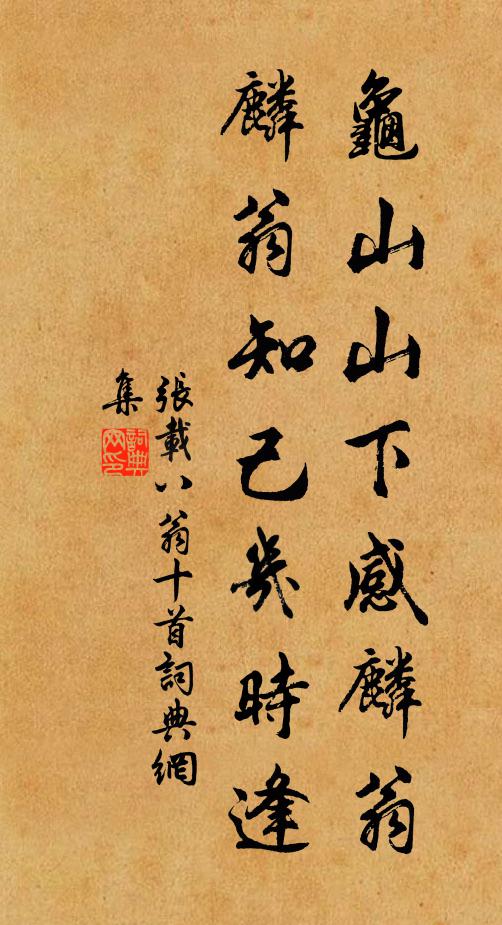 龜山山下感麟翁
麟翁知己幾時逢
張載八翁十首詞典網
集
詞典網印